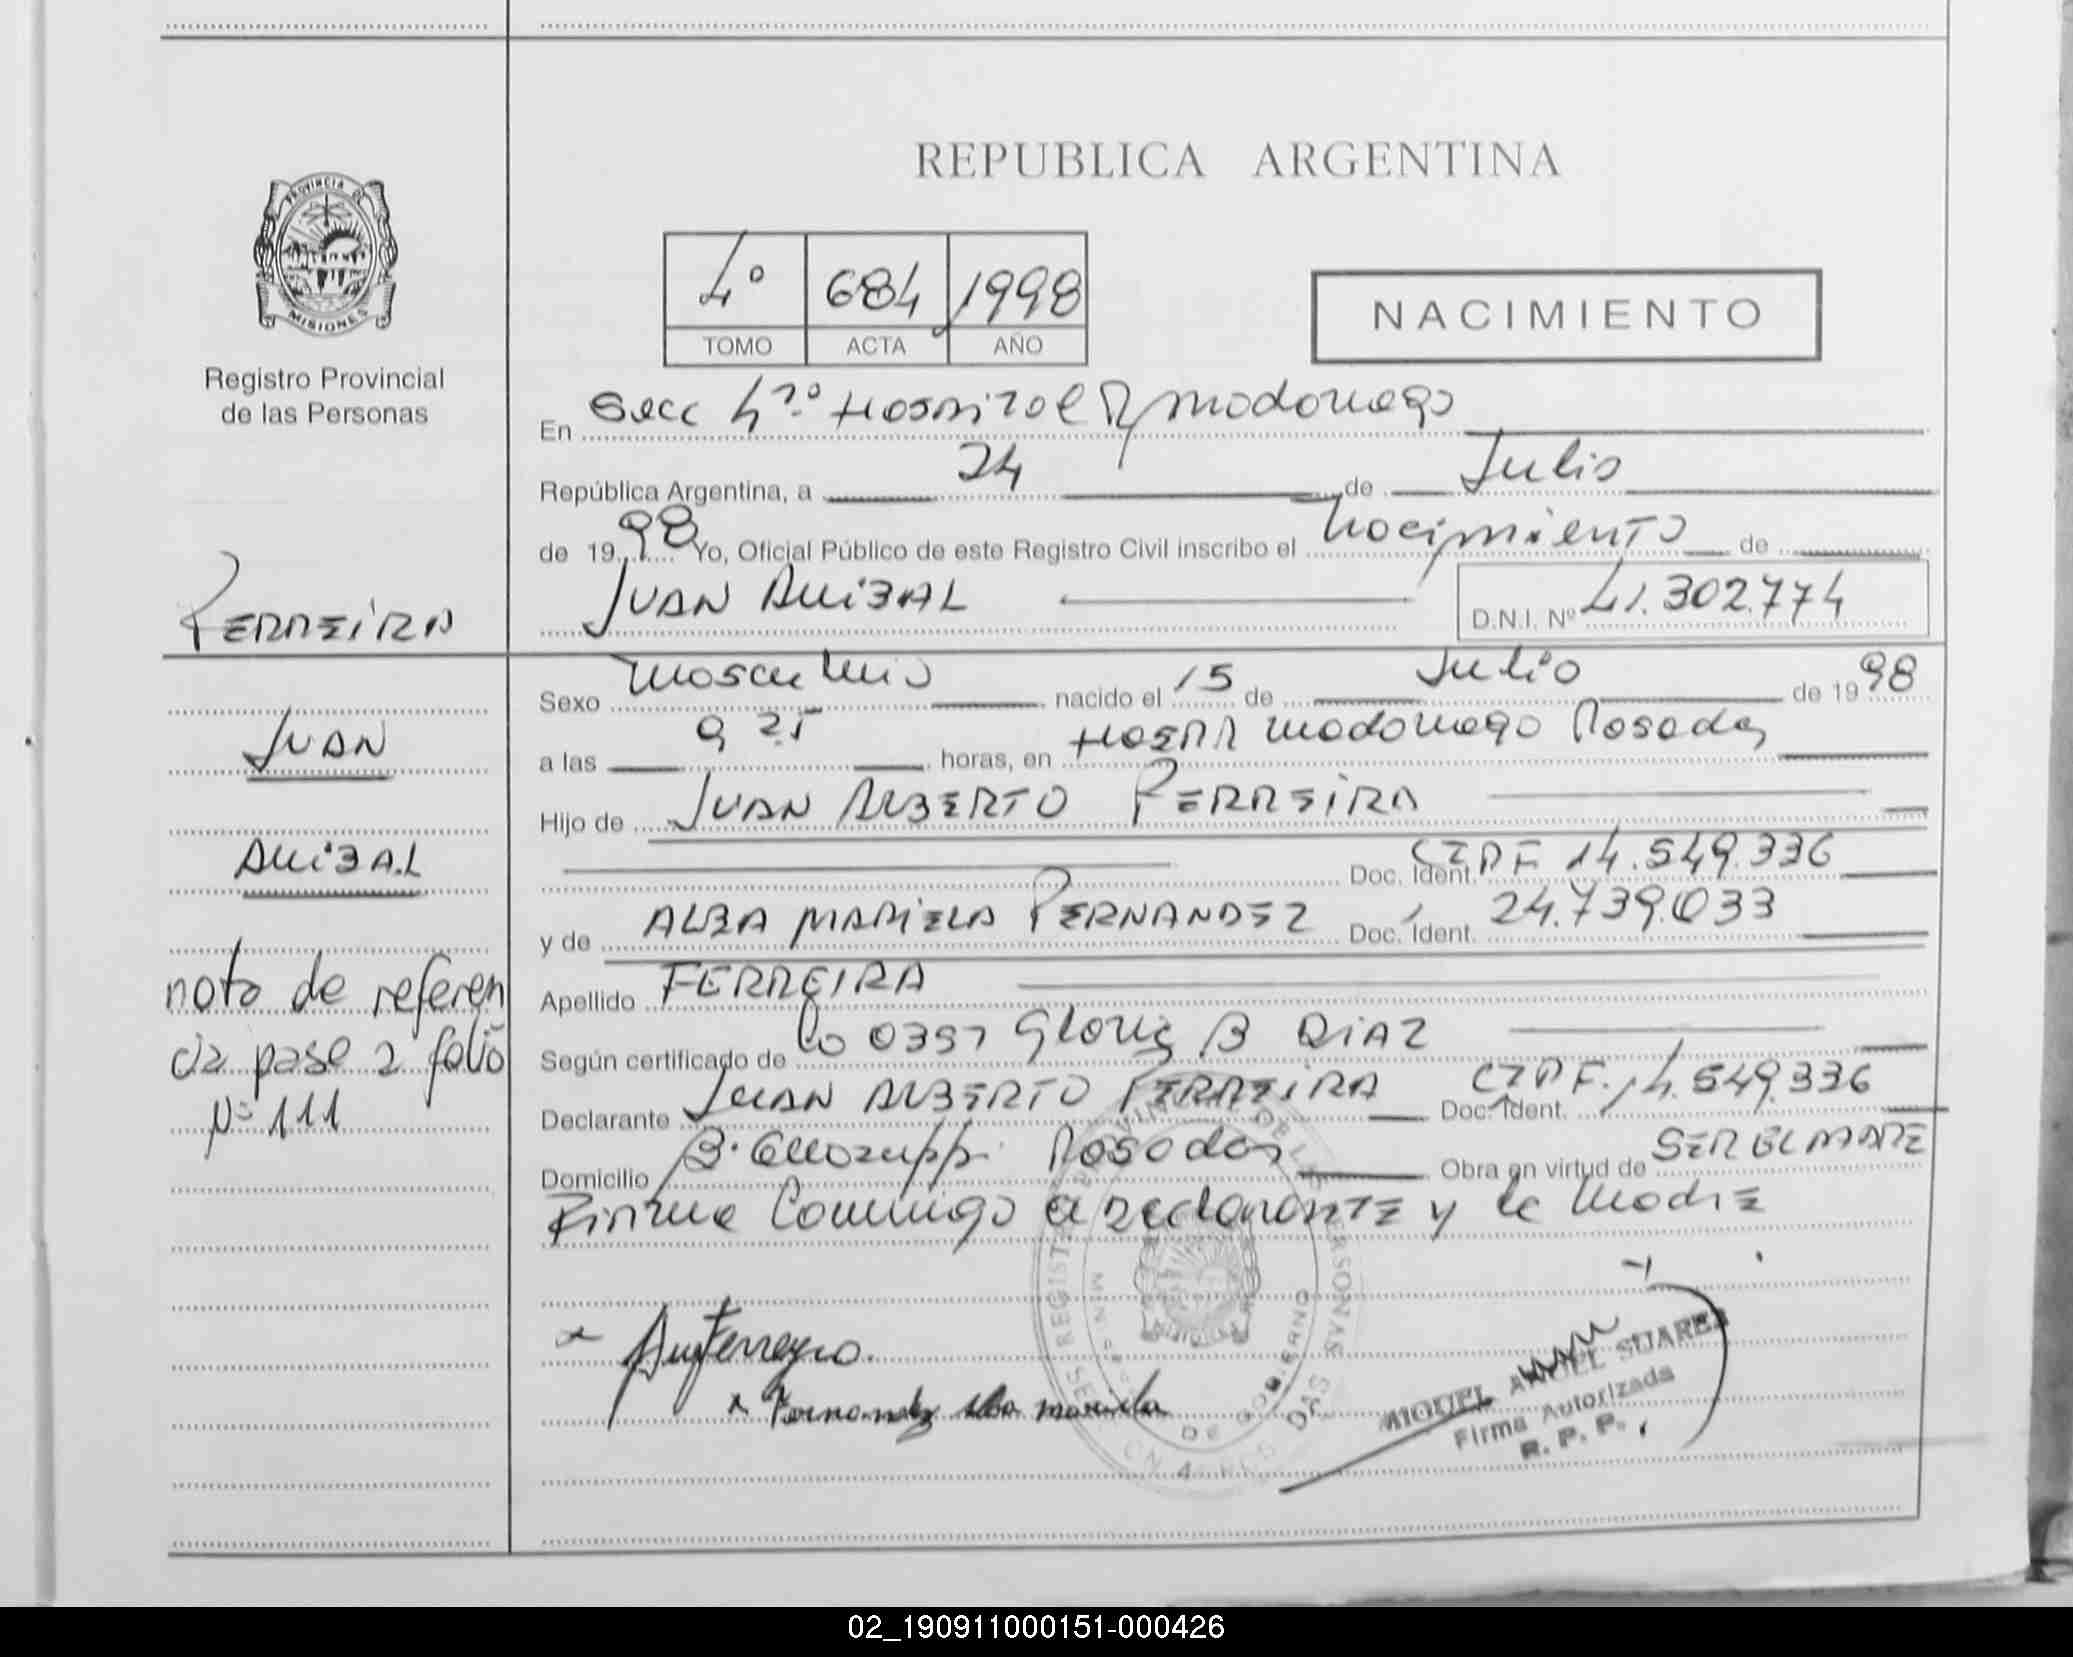 REPUBLICA ARGENTINA
PROVINCIA DE
MISIONES
Registro Provincial
de las Personas
4º 684 1998
TOMO ACTA AÑO
NACIMIENTO
En Secc 4ª Hospital R Madariaga
República Argentina, a 24 de Julio
de 1998 Yo, Oficial Público de este Registro Civil inscribo el Nacimiento de
FERREIRA
JUAN ANIBAL
D.N.I. Nº 41.302.774
Sexo Masculino nacido el 15 de Julio de 1998
JUAN
a las 9 25 horas, en HOSP R Madariaga Posadas
Hijo de JUAN ALBERTO FERREIRA
ANIBAL
Doc. Ident. CIPF 14.549.336
y de ALBA MARIELA FERNANDEZ Doc. Ident. 24.739.033
nota de referen
cia pase a folio
Nº 111
Apellido FERREIRA
Según certificado de 0397 Gloria B DIAZ
Declarante JUAN ALBERTO FERREIRA Doc. Ident. CIPF. 14.549.336
Domicilio Posadas Obra en virtud de SER EL PADRE
Firma Conmigo el declarante y la Madre
Fernandez Alba mariela
MIGUEL ANGEL SUAREZ
Firma Autorizada
R. P. P.
02_190911000151-000426